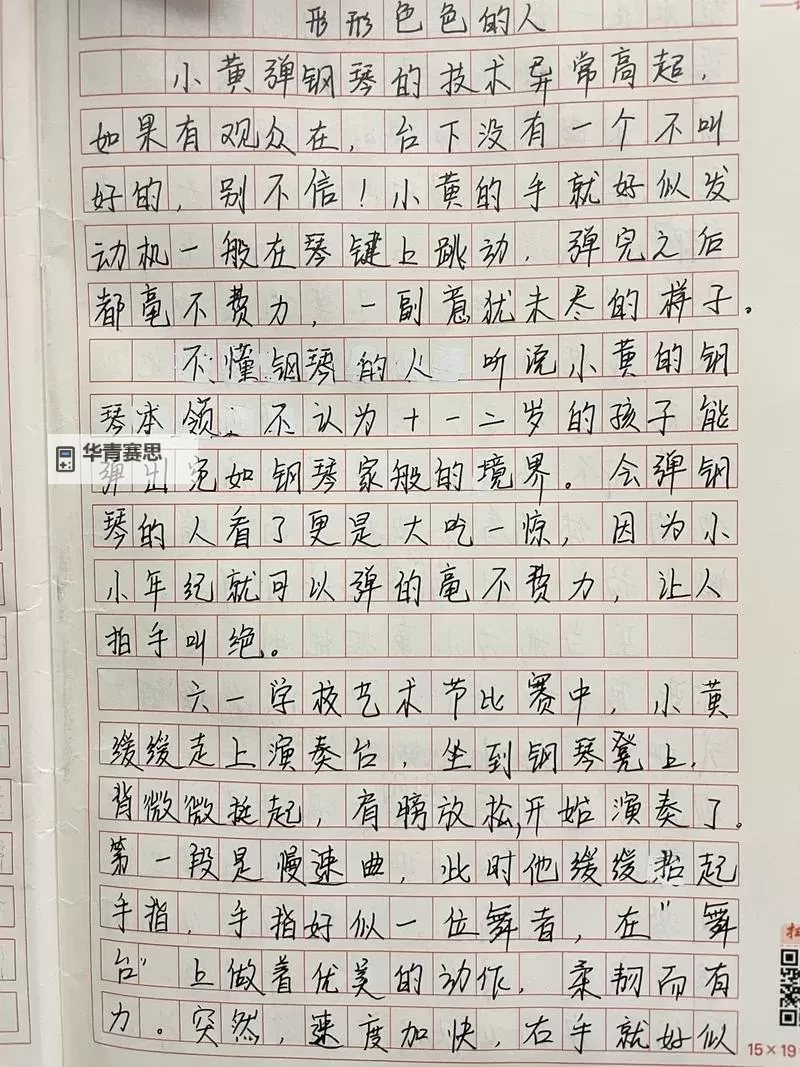 形形色色的人
小黄弹钢琴的技术异常高超，
如果有观众在，台下没有一个不叫
好的，别不信！小黄的手就好似发
动机一般在琴键上跳动，弹完之后
都毫不费力，一副意犹未尽的样子。
不懂钢琴的人 听说小黄的钢
琴本领，不认为十一二岁的孩子能
弹出宛如钢琴家般的境界。会弹钢
琴的人看了更是大吃一惊，因为小
小年纪就可以弹的毫不费力，让人
拍手叫绝。
六一学校艺术节比赛中，小黄
缓缓走上演奏台，坐到钢琴凳上，
背微微挺起，肩膀放松，开始演奏了。
第一段是慢速曲，此时他缓缓抬起
手指，手指好似一位舞者，在"舞
台"上做着优美的动作，柔韧而有
力。突然，速度加快，右手就好似
华青赛思
15×19